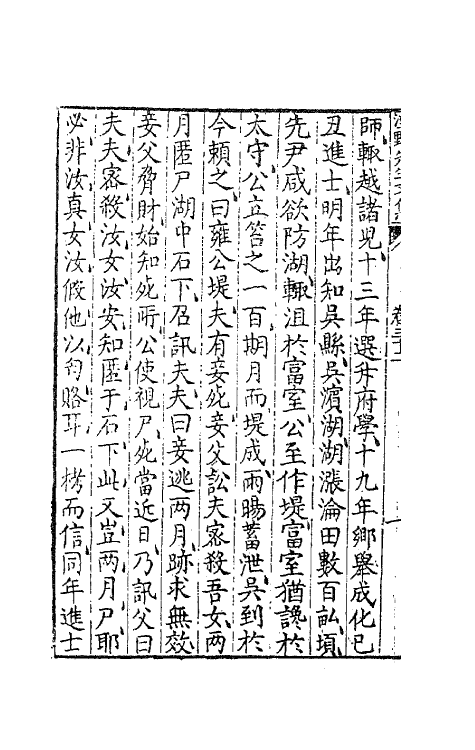 師輙越諸児十三年選升府學十九年鄉舉成化己
丑進士明年出知吳縣吳濵湖湖漲淪田數百畝頃
先尹咸欲防湖輙沮於富室公至作堤富室猶讒於
太守公立笞之一百期月而堤成雨暘蓄泄吳到於
今頼之曰雍公堤夫有妾死妾父訟夫宻殺吾女兩
月匿尸湖中石下召訊夫夫曰妾逃兩月跡求無效
妾父脅財始知死所公使視尸死當近日乃訊父曰
夫夫宻殺汝女汝安知匿于石下此又豈兩月尸耶
必非汝真女汝假他以匄賂耳一栲而信同年進士